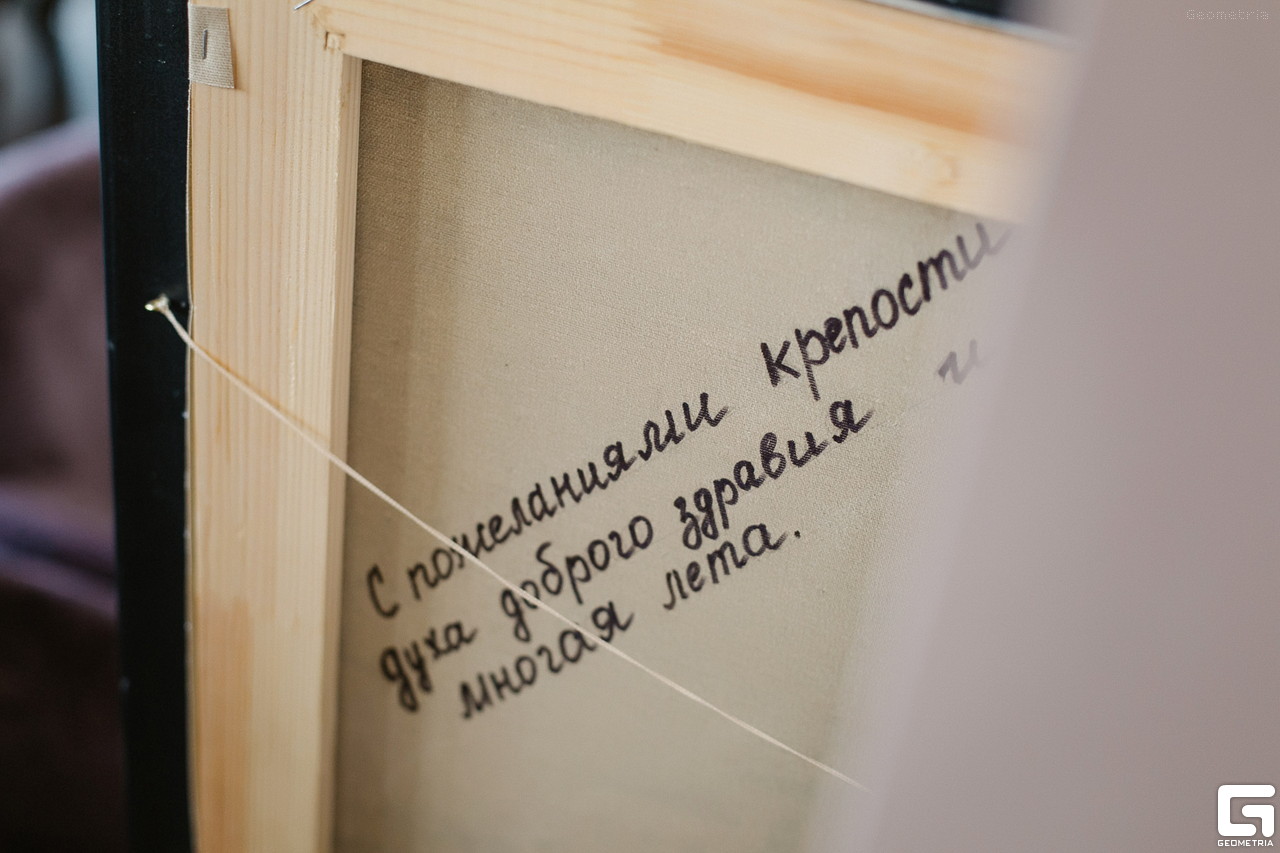 Geometria
С пожеланиями крепости
духа доброго здравия и
многая лета.
GEOMETRIA